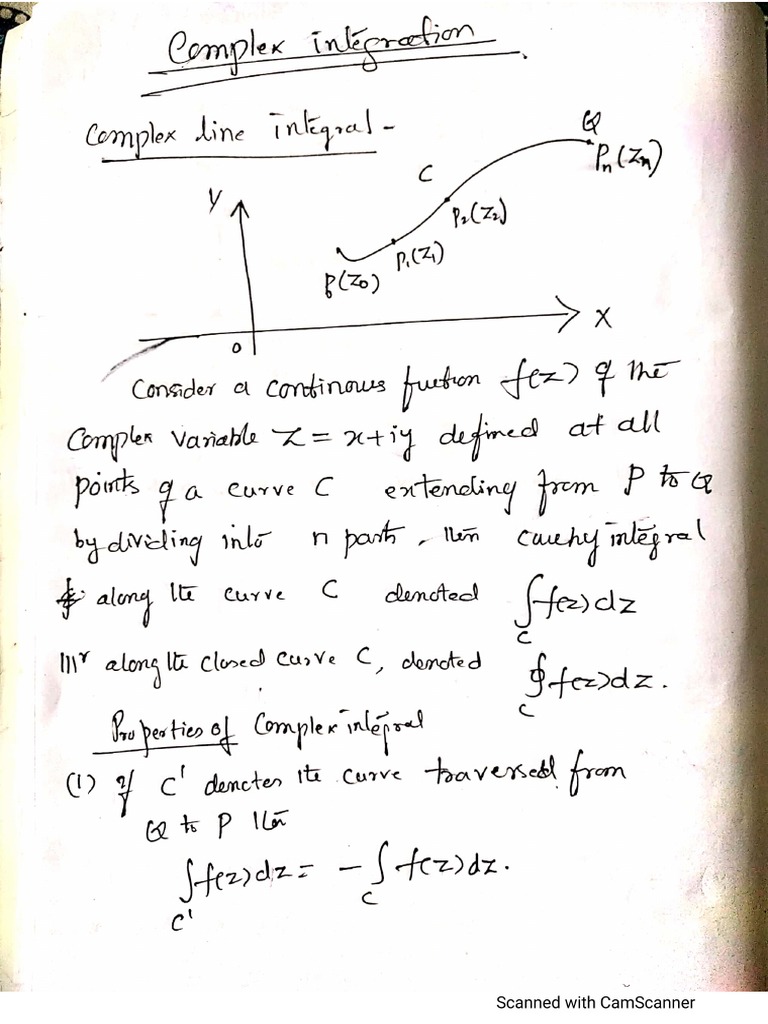 Complex integration
Complex line integral -
Q
C
Pn(Zn)
Y
P2(Z2)
P1(Z1)
P(Z0)
X
0
Consider a continous fuction f(z) of the
Complex variable Z = x+iy defined at all
points of a curve C extending from P to Q
by dividing into n parts, then cauchy integral
along the curve C denoted ∫f(z)dz
C
|||r along the closed curve C, denoted ∮f(z)dz.
C
Properties of Complex integral
(1) If C' denotes the curve traversed from
Q to P then
∫f(z)dz = - ∫f(z)dz.
C' C
Scanned with CamScanner